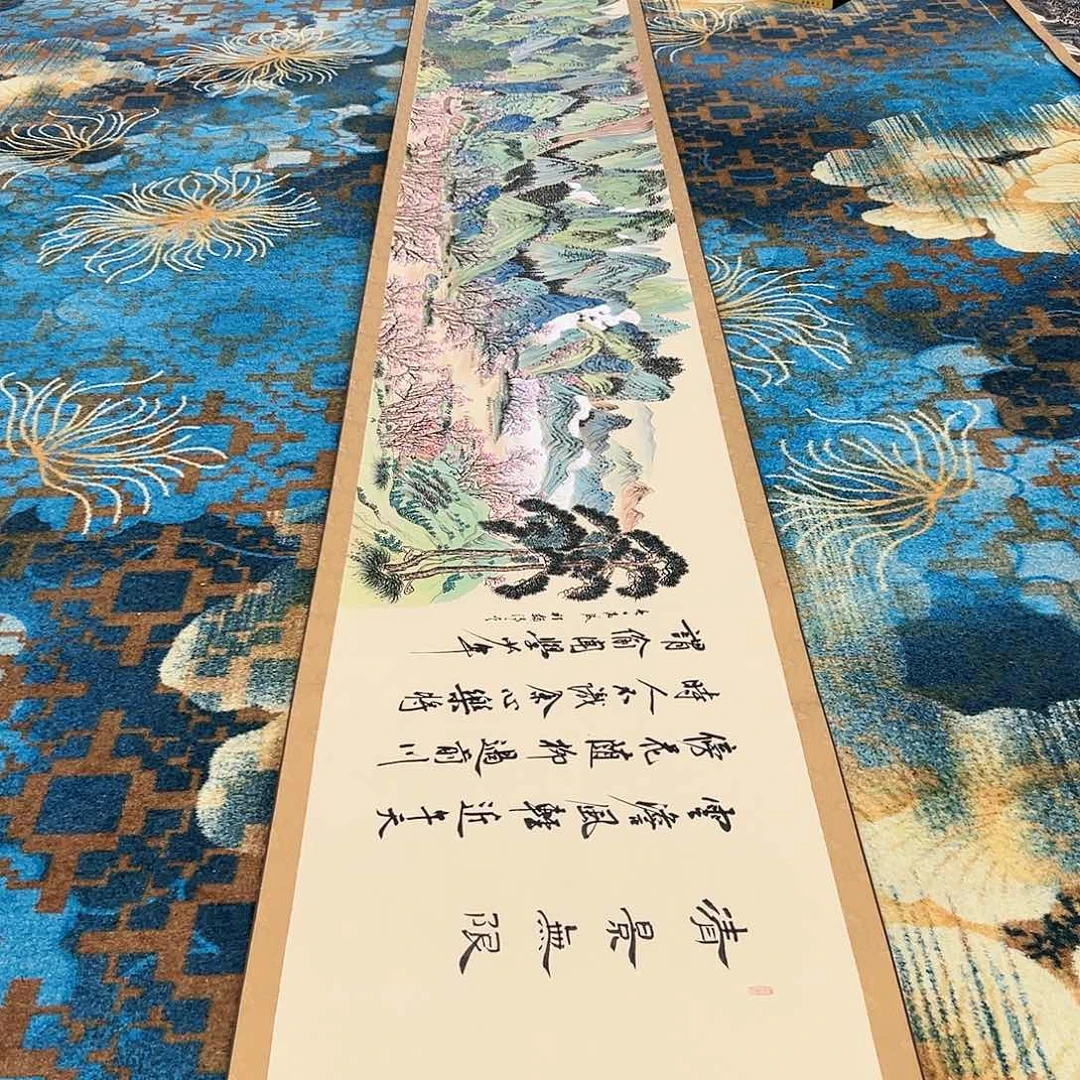 清景無限
雲澹風輕近午天
傍花隨柳過前川
時人不識余心樂將
謂偷閒學少年